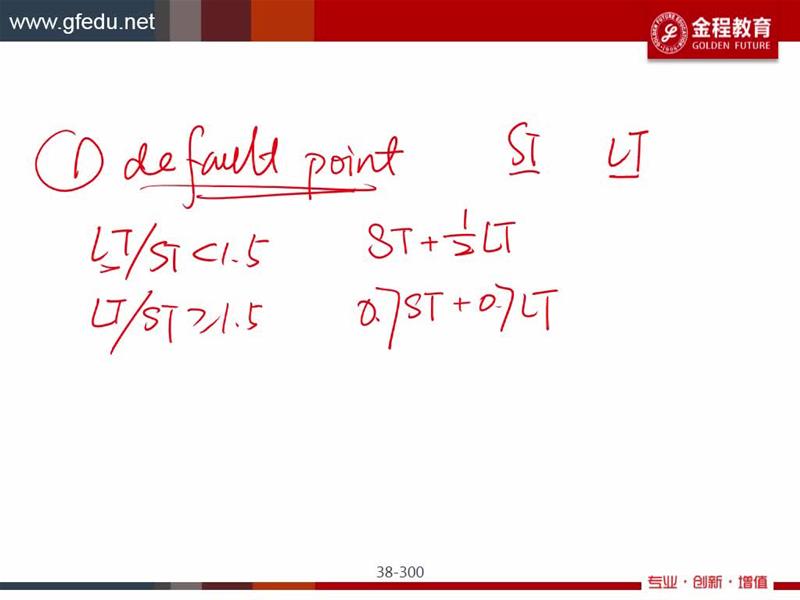 www.gfedu.net
金程教育
GOLDEN FUTURE
① default point ST LT
LT/ST<1.5 ST+½LT
LT/ST≥1.5 0.7ST+0.7LT
38-300
专业·创新·增值